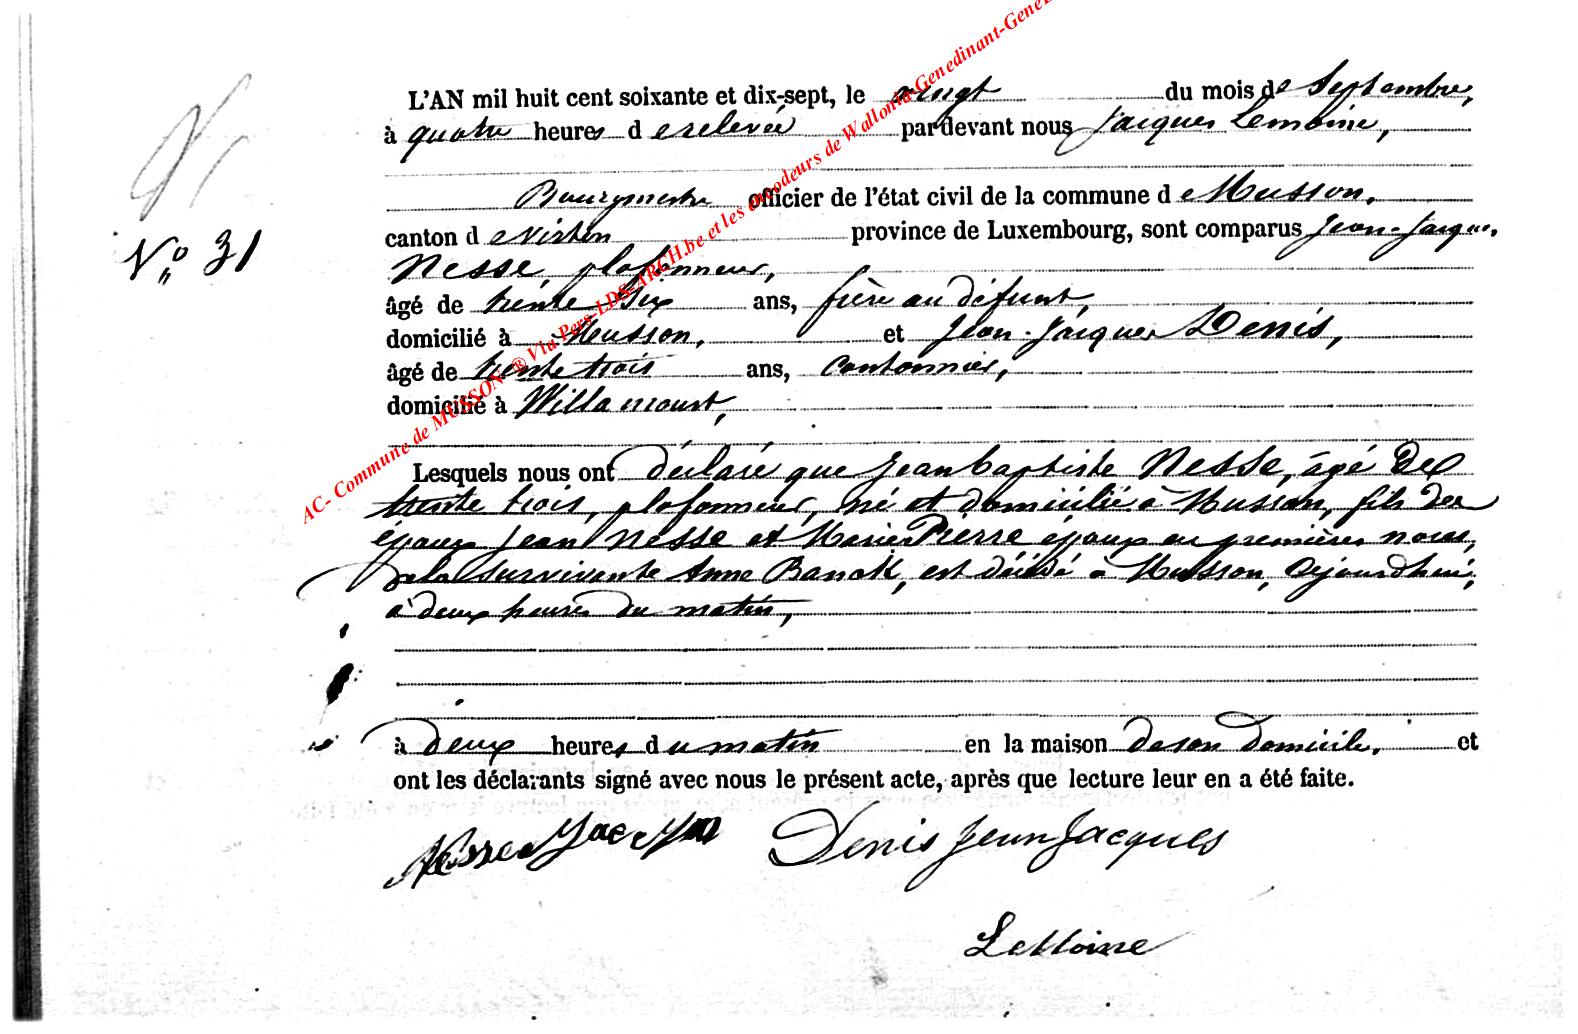 L'AN mil huit cent soixante et dix-sept, le vingt du mois de Septembre,
à quatre heures de relevée pardevant nous Jacques Lemoine,
Bourgmestre officier de l'état civil de la commune de Musson,
canton de Virton province de Luxembourg, sont comparus Jean-Jacques
Nesse, plafonneur,
âgé de trente six ans, frère au défunt,
domicilié à Musson, et Jean-Jacques Denis,
âgé de trente trois ans, Cantonnier,
domicilié à Willancourt,
N° 31
Lesquels nous ont déclaré que Jean baptiste Nesse, âgé de
trente trois, plafonneur, né et domicilié à Musson, fils des
époux Jean Nesse et Marie Pierre époux en premières noces,
de la survivante Anne Banck, est décédé à Musson, Cejourd'hui,
à deux heures du matin,
à deux heures du matin en la maison de son domicile, et
ont les déclarants signé avec nous le présent acte, après que lecture leur en a été faite.
Nesse Denis Jean Jacques
LeMoine
AC- Commune de MUSSON ® Via Pers-LDS-ARCH.be et les encodeurs de Wallonia-Genedinant-Gene